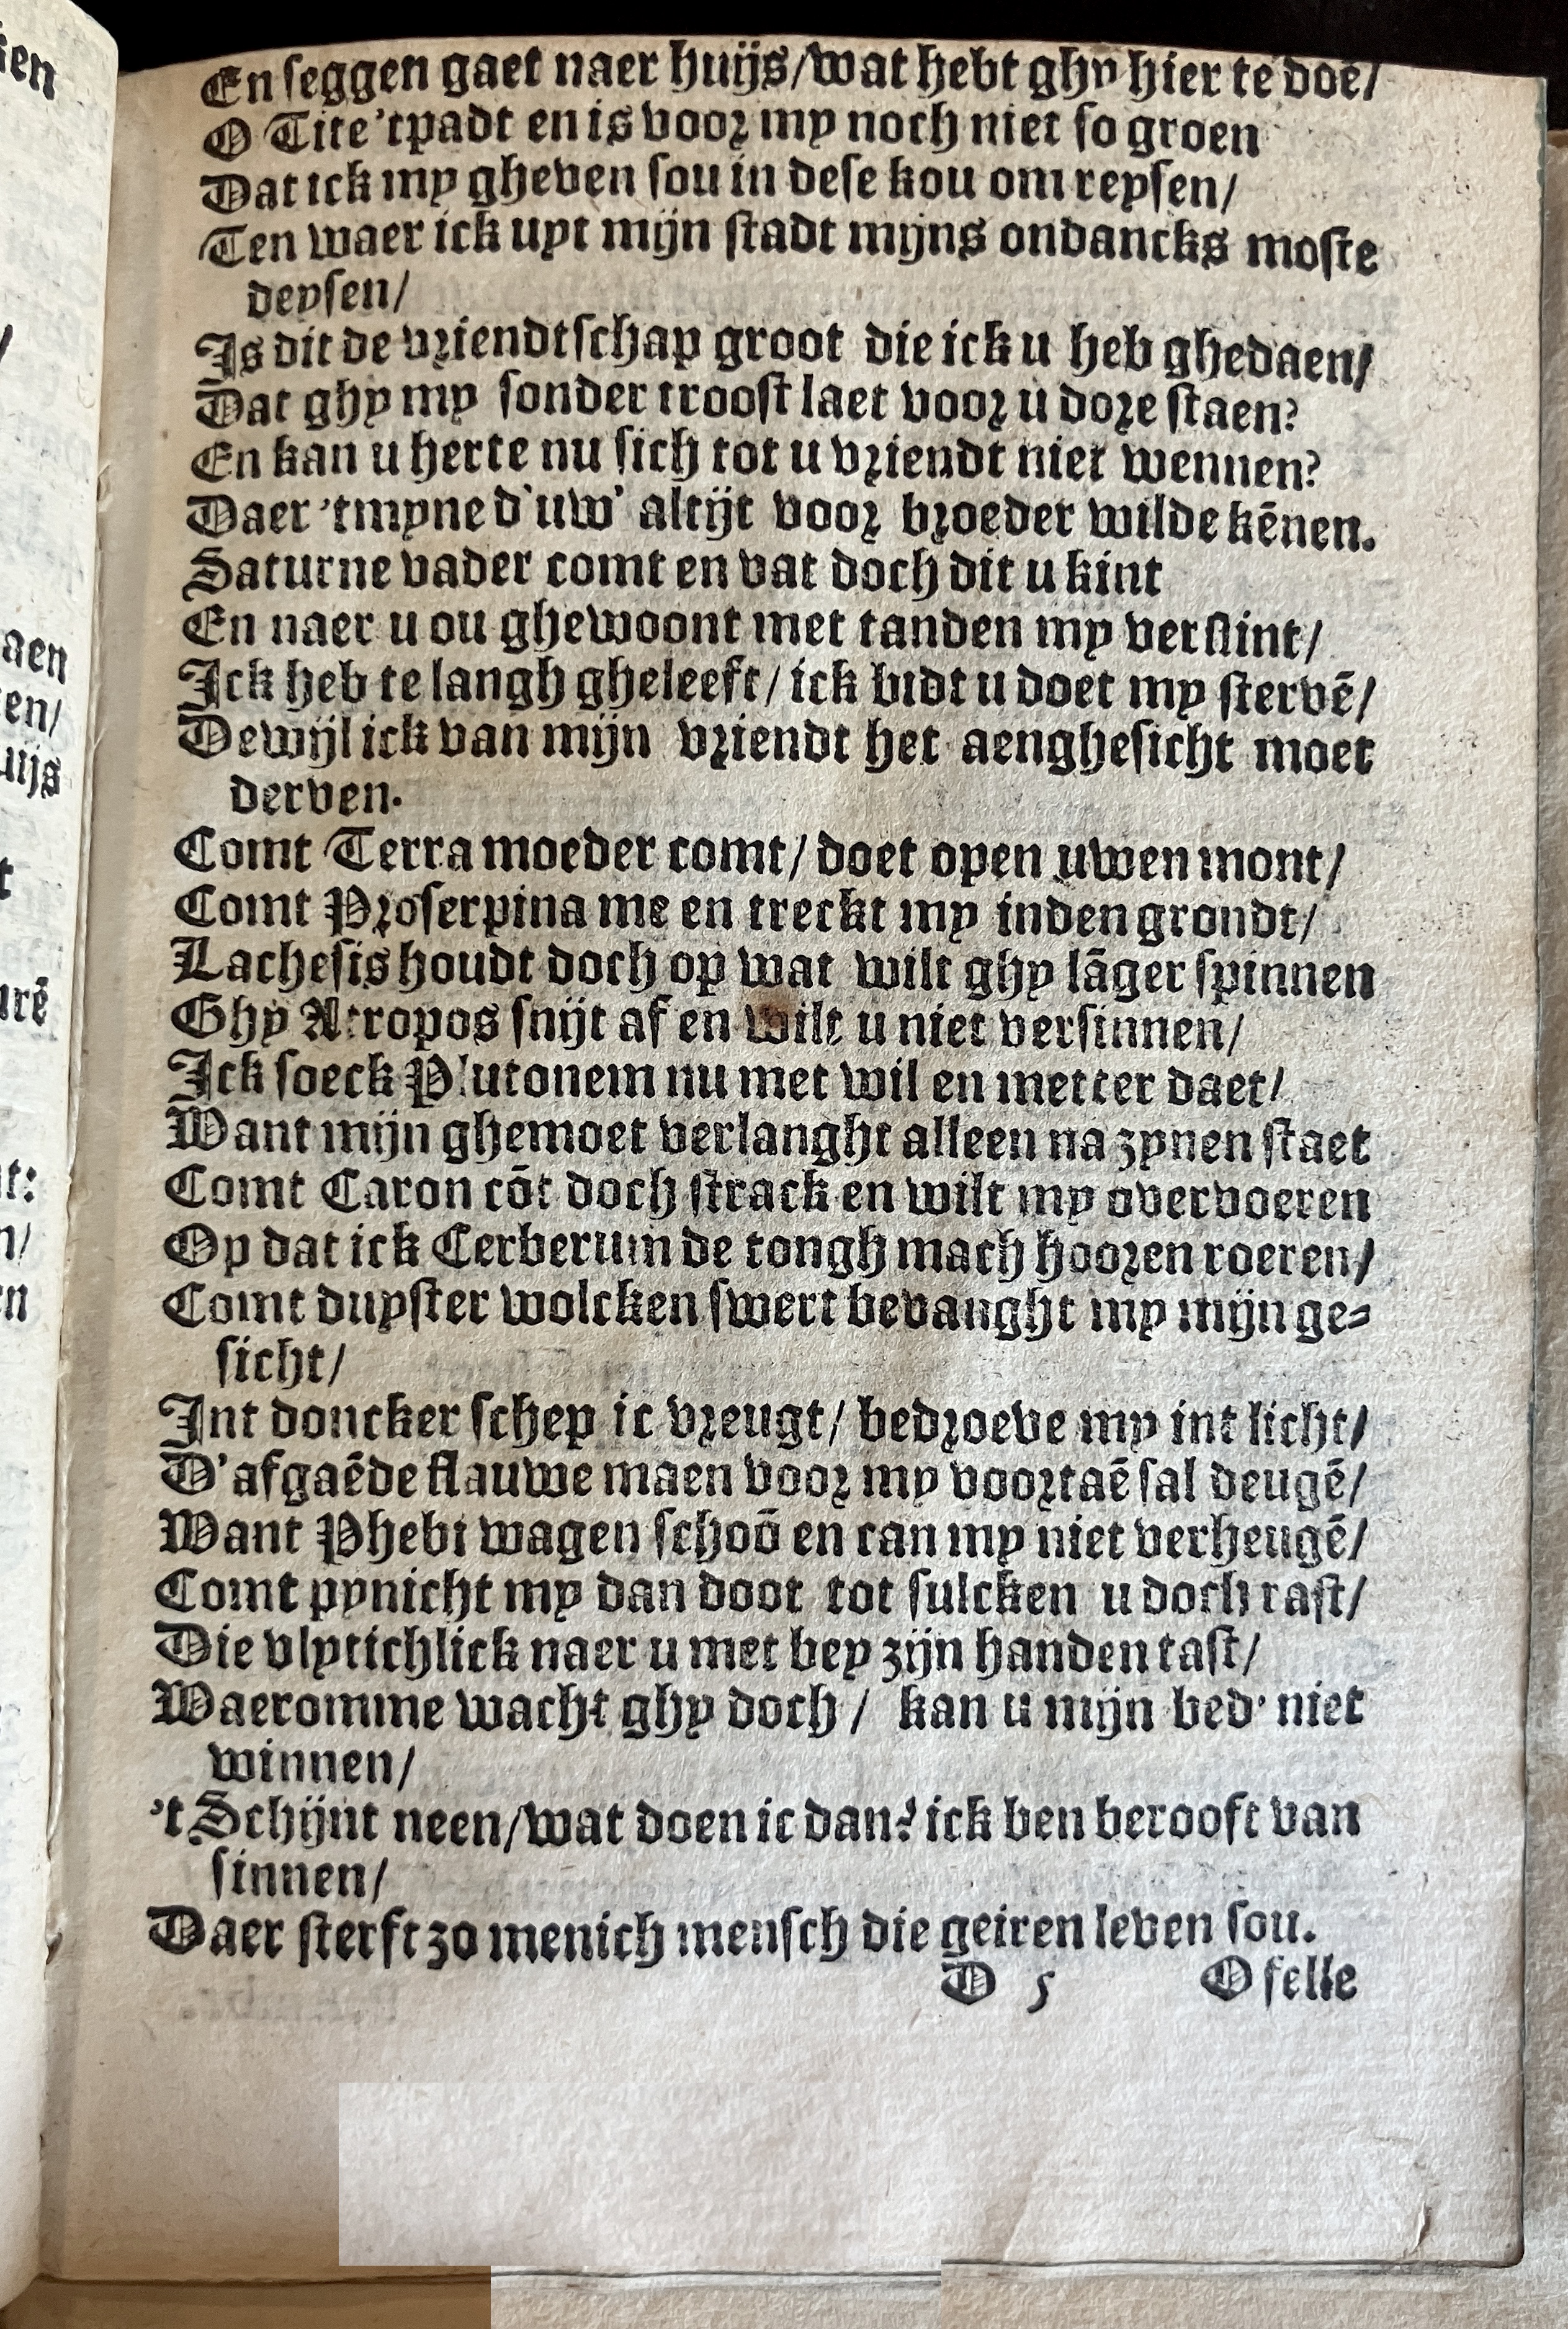 En seggen gaet naer huijs/wat hebt ghy hier te doē/
O Tite 'tpadt en is voor my noch niet so groen
Dat ick my gheven sou in dese kou om reysen/
Ten waer ick uyt mijn stadt mijns ondancks moste
deysen/
Is dit de vriendtschap groot die ick u heb ghedaen/
Dat ghy my sonder troost laet voor u dore staen?
En kan u herte nu sich tot u vriendt niet wennen?
Daer 'tmyne d'uw' altijt voor broeder wilde kēnen.
Saturne vader comt en vat doch dit u kint
En naer u ou ghewoont met tanden my verslint/
Ick heb te langh gheleeft/ ick bidt u doet my stervē/
Dewijl ick van mijn vriendt het aenghesicht moet
derven.
Comt Terra moeder comt/ doet open uwen mont/
Comt Proserpina me en treckt my inden grondt/
Lachesis houdt doch op wat wilt ghy lāger spinnen
Ghy Atropos snijt af en wilt u niet versinnen/
Ick soeck Plutonem nu met wil en metter daet/
Want mijn ghemoet verlanght alleen na zynen staet
Comt Caron cōt doch strack en wilt my overvoeren
Op dat ick Cerberum de tongh mach hooren roeren/
Comt duyster wolcken swert bevanght my mijn ge-
sicht/
Int doncker schep ic vreugt/ bedroeve my int licht/
D'afgaēde flauwe maen voor my voortaē sal deugē/
Want Phebi wagen schoō en can my niet verheugē/
Comt pynicht my dan doot tot sulcken u doch rast/
Die vlytichlick naer u met bey zijn handen tast/
Waeromme wacht ghy doch/ kan u mijn bed' niet
winnen/
't Schijnt neen/wat doen ic dan? ick ben berooft van
sinnen/
Daer sterft zo menich mensch die geiren leven sou.
D 5 O felle